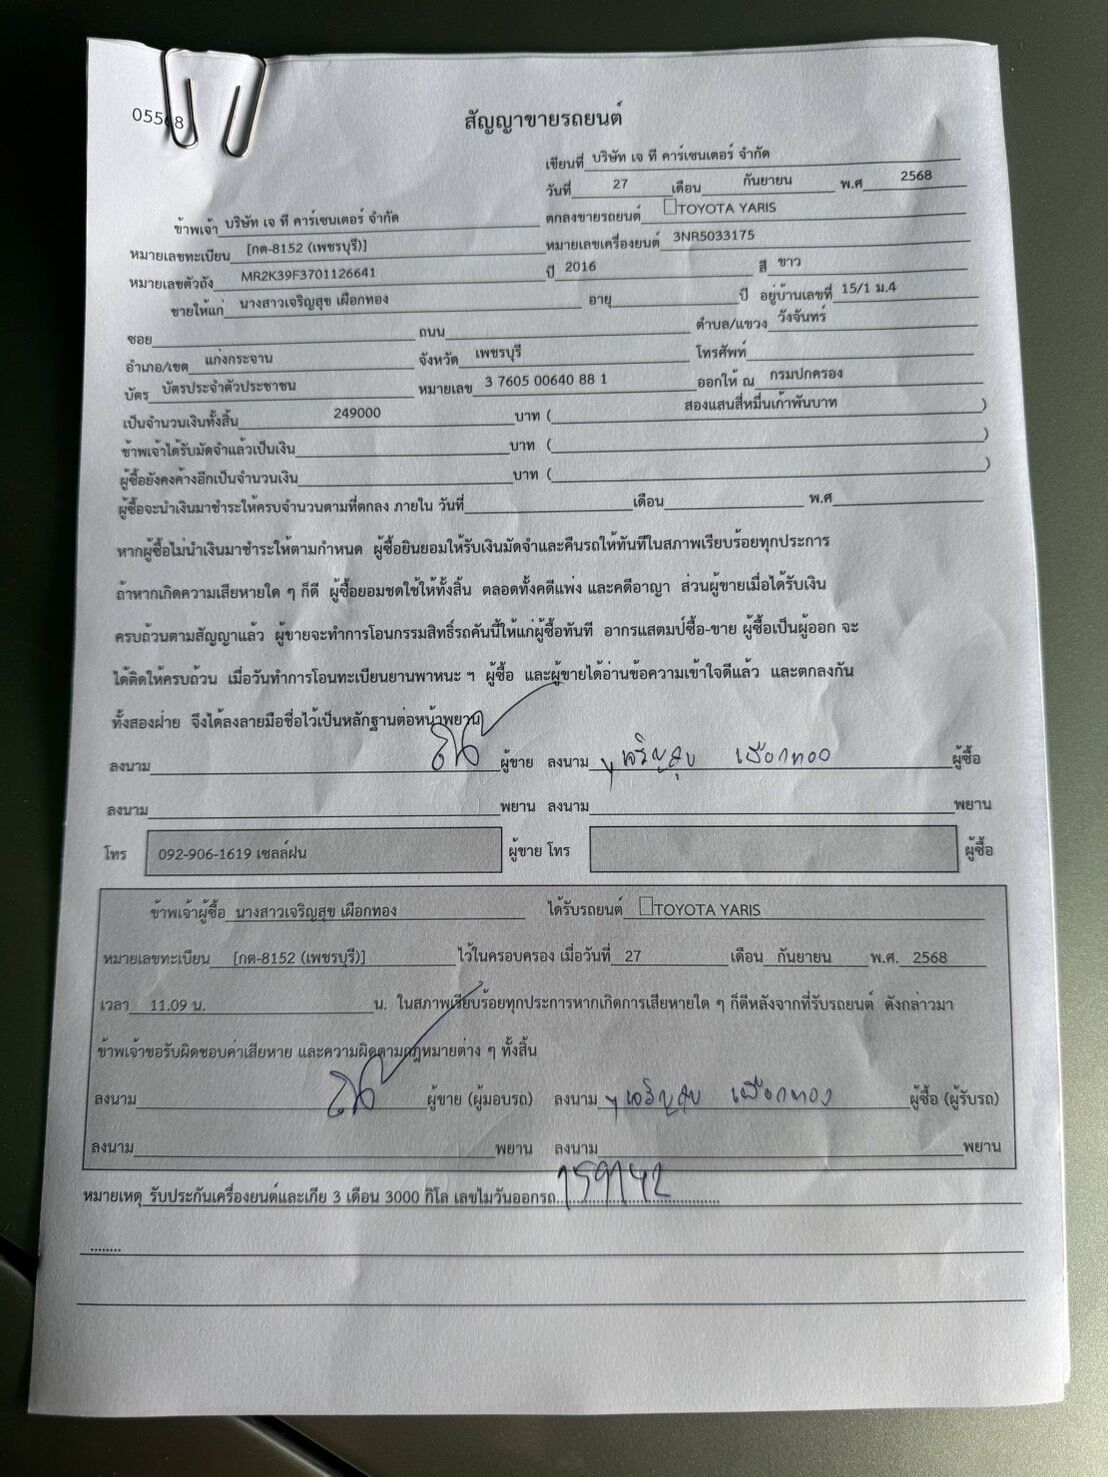 05568
สัญญาขายรถยนต์
เขียนที่ บริษัท เจ ที คาร์เซนเตอร์ จำกัด
วันที่ 27 เดือน กันยายน พ.ศ 2568
ข้าพเจ้า บริษัท เจ ที คาร์เซนเตอร์ จำกัด ตกลงขายรถยนต์ TOYOTA YARIS
หมายเลขทะเบียน [กต-8152 (เพชรบุรี)] หมายเลขเครื่องยนต์ 3NR5033175
หมายเลขตัวถัง MR2K39F3701126641 ปี 2016 สี ขาว
ขายให้แก่ นางสาวเจริญสุข เผือกทอง อายุ ปี อยู่บ้านเลขที่ 15/1 ม.4
ซอย ถนน ตำบล/แขวง วังจันทร์
อำเภอ/เขต แก่งกระจาน จังหวัด เพชรบุรี โทรศัพท์
บัตร บัตรประจำตัวประชาชน หมายเลข 3 7605 00640 88 1 ออกให้ ณ กรมปกครอง
เป็นจำนวนเงินทั้งสิ้น 249000 บาท ( สองแสนสี่หมื่นเก้าพันบาท )
ข้าพเจ้าได้รับมัดจำแล้วเป็นเงิน บาท ( )
ผู้ซื้อยังคงค้างอีกเป็นจำนวนเงิน บาท ( )
ผู้ซื้อจะนำเงินมาชำระให้ครบจำนวนตามที่ตกลง ภายใน วันที่ เดือน พ.ศ
หากผู้ซื้อไม่นำเงินมาชำระให้ตามกำหนด ผู้ซื้อยินยอมให้รับเงินมัดจำและคืนรถให้ทันทีในสภาพเรียบร้อยทุกประการ
ถ้าหากเกิดความเสียหายใด ๆ ก็ดี ผู้ซื้อยอมชดใช้ให้ทั้งสิ้น ตลอดทั้งคดีแพ่ง และคดีอาญา ส่วนผู้ขายเมื่อได้รับเงิน
ครบถ้วนตามสัญญาแล้ว ผู้ขายจะทำการโอนกรรมสิทธิ์รถคันนี้ให้แก่ผู้ซื้อทันที อากรแสตมป์ซื้อ-ขาย ผู้ซื้อเป็นผู้ออก จะ
ได้ติดให้ครบถ้วน เมื่อวันทำการโอนทะเบียนยานพาหนะ ฯ ผู้ซื้อ และผู้ขายได้อ่านข้อความเข้าใจดีแล้ว และตกลงกัน
ทั้งสองฝ่าย จึงได้ลงลายมือชื่อไว้เป็นหลักฐานต่อหน้าพยาน
ลงนาม ผู้ขาย ลงนาม เจริญสุข เผือกทอง ผู้ซื้อ
ลงนาม พยาน ลงนาม พยาน
โทร 092-906-1619 เซลล์ฝน ผู้ขาย โทร ผู้ซื้อ
ข้าพเจ้าผู้ซื้อ นางสาวเจริญสุข เผือกทอง ได้รับรถยนต์ TOYOTA YARIS
หมายเลขทะเบียน [กต-8152 (เพชรบุรี)] ไว้ในครอบครอง เมื่อวันที่ 27 เดือน กันยายน พ.ศ. 2568
เวลา 11.09 น. น. ในสภาพเรียบร้อยทุกประการหากเกิดการเสียหายใด ๆ ก็ดีหลังจากที่รับรถยนต์ ดังกล่าวมา
ข้าพเจ้าขอรับผิดชอบค่าเสียหาย และความผิดตามกฎหมายต่าง ๆ ทั้งสิ้น
ลงนาม ผู้ขาย (ผู้มอบรถ) ลงนาม เจริญสุข เผือกทอง ผู้ซื้อ (ผู้รับรถ)
ลงนาม พยาน ลงนาม พยาน
หมายเหตุ รับประกันเครื่องยนต์และเกีย 3 เดือน 3000 กิโล เลขไมวันออกรถ 159142